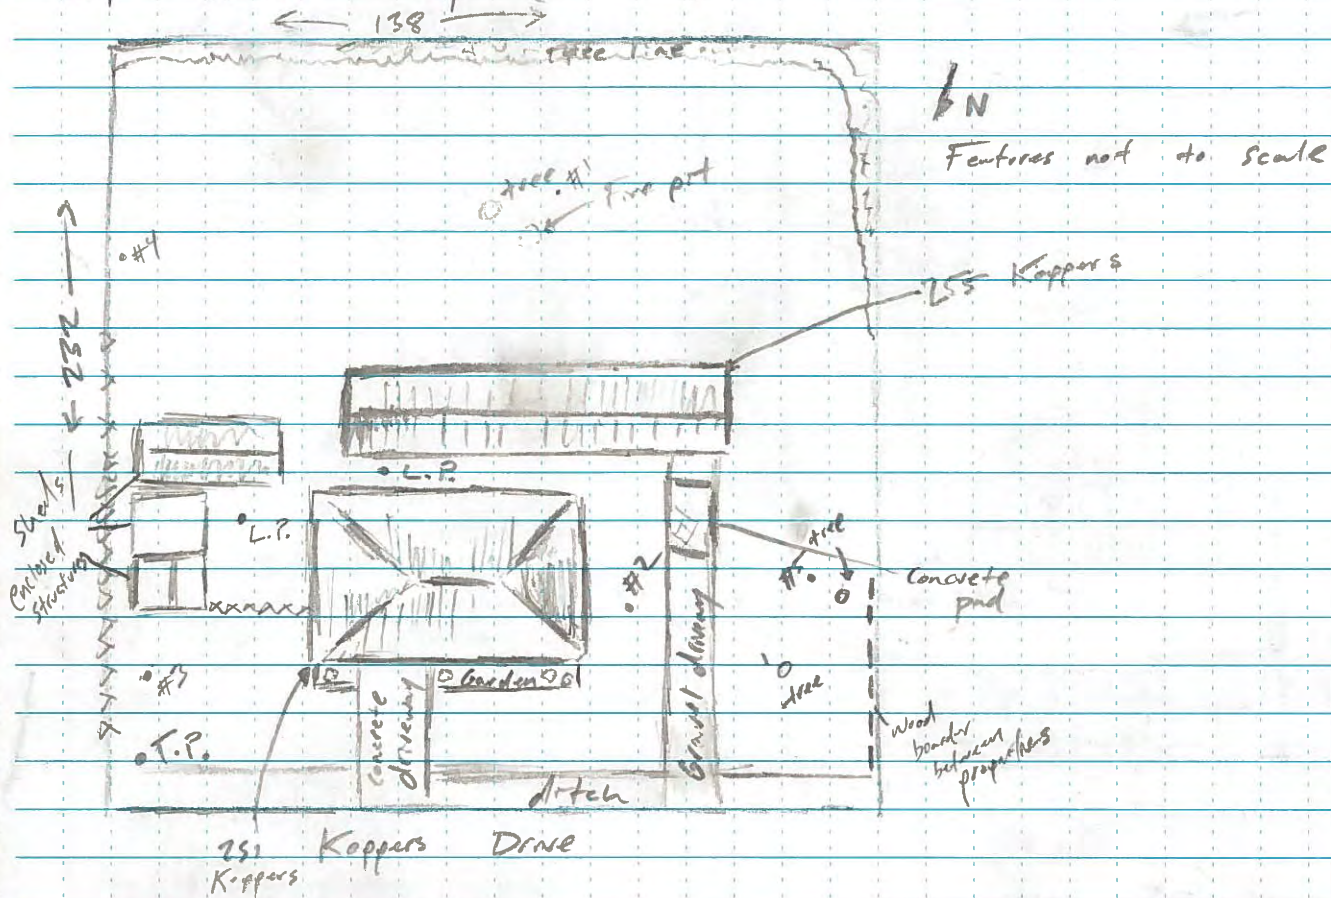 138
tree line
N
Features not to scale
tree
#1
Fire pit
#4
232
255 Koppers
L.P.
Sheds/
enclosed
structures
L.P.
#2
tree
#5
Concrete
pad
#3
Garden
tree
Concrete
driveway
Gravel driveway
Wood
boarder
between
properties
T.P.
ditch
251
Koppers
Koppers Drive